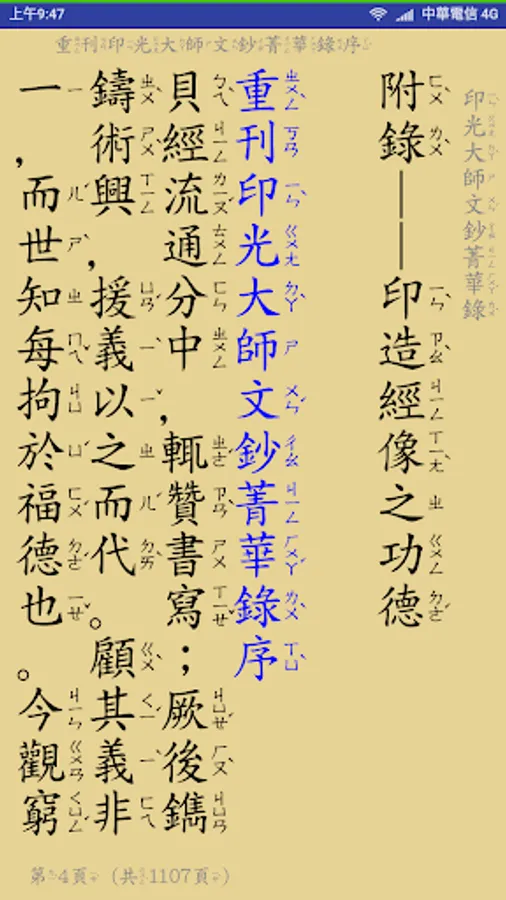 上午9:47 中華電信 4G
重刊印光大師文鈔菁華錄序
印光大師文鈔菁華錄
附錄——印造經像之功德
重刊印光大師文鈔菁華錄序
貝經流通分中，輒贊書寫；厥後鐫
鑄術興，援義以之而代。顧其義非
一，而世知每拘於福德也。今觀窮
第4頁 (共1107頁)